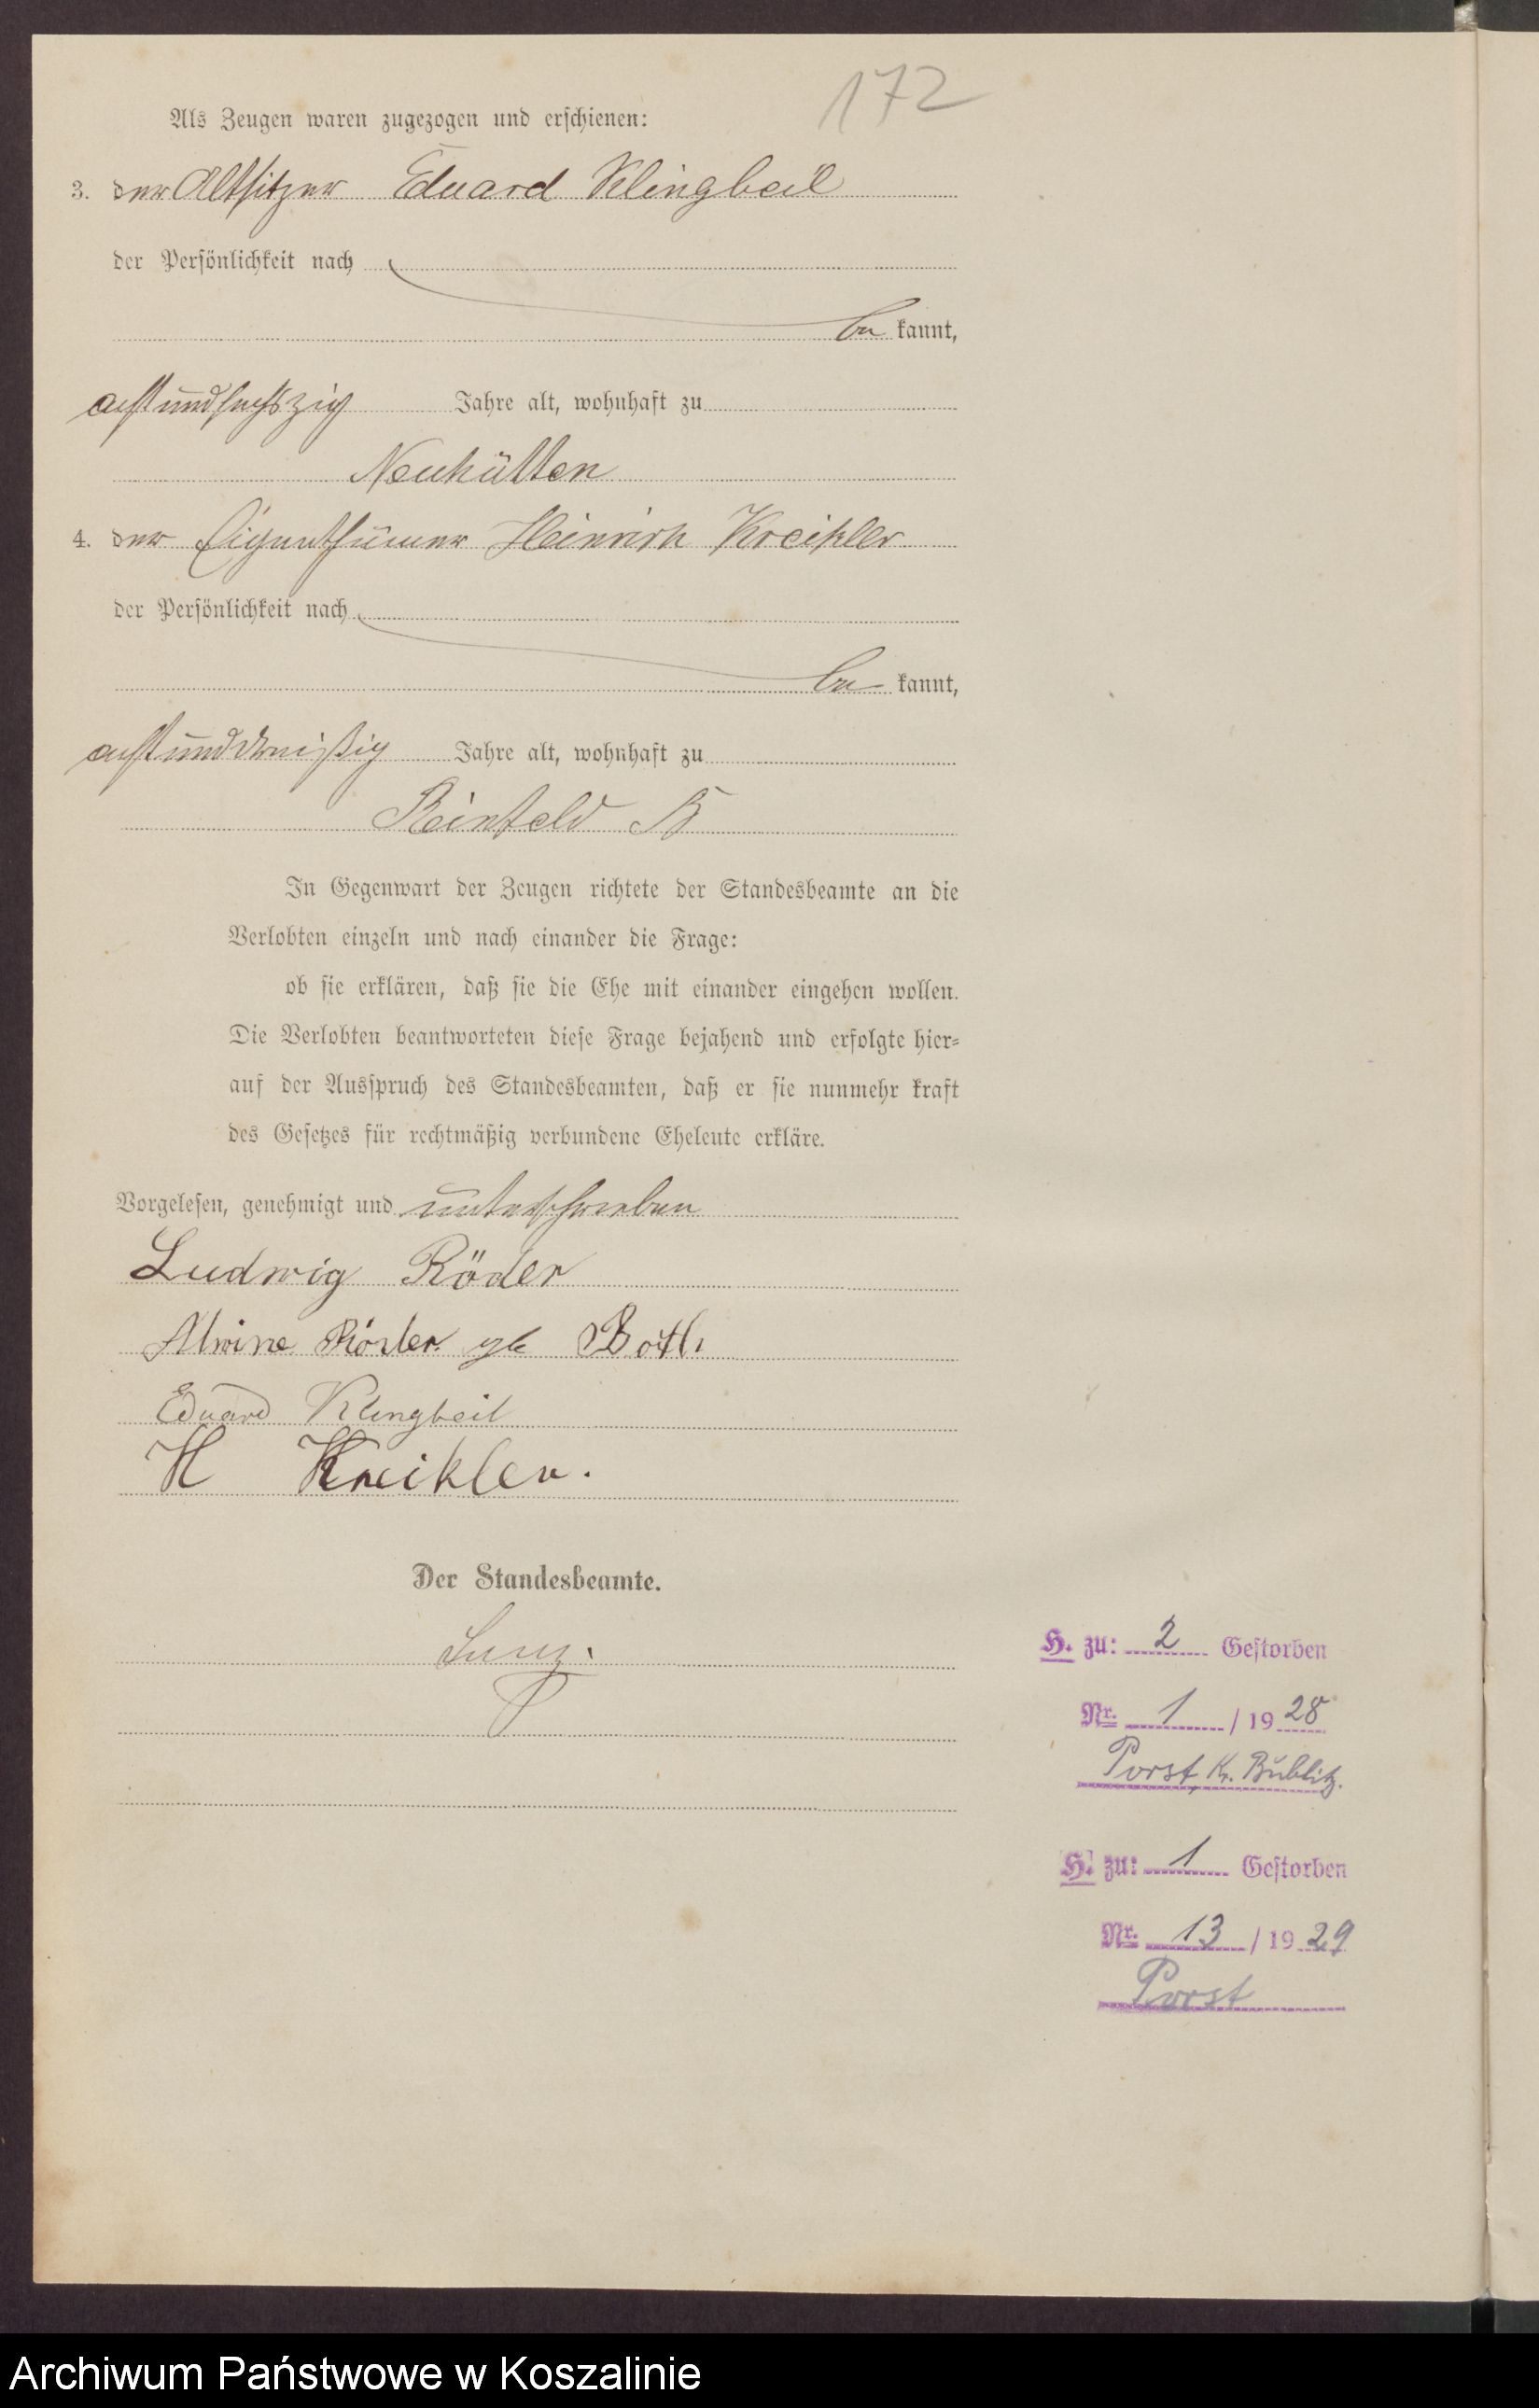 172
Als Zeugen waren zugezogen und erschienen:
3. der Altsitzer Eduard Klingbeil
der Persönlichkeit nach
be kannt,
achtundsechszig Jahre alt, wohnhaft zu
Neuhütten
4. der Eigenthümer Heinrich Kreikler
der Persönlichkeit nach
be kannt,
achtunddreißig Jahre alt, wohnhaft zu
Reinfeld B
In Gegenwart der Zeugen richtete der Standesbeamte an die
Verlobten einzeln und nach einander die Frage:
ob sie erklären, daß sie die Ehe mit einander eingehen wollen.
Die Verlobten beantworteten diese Frage bejahend und erfolgte hier-
auf der Ausspruch des Standesbeamten, daß er sie nunmehr kraft
des Gesetzes für rechtmäßig verbundene Eheleute erkläre.
Vorgelesen, genehmigt und unterschrieben
Ludwig Röder
Alwine Röder gb Both
Eduard Klingbeil
H Kreikler.
Der Standesbeamte.
H. zu: 2 Gestorben
Nr. 1 / 19 28
Porst, Kr. Bublitz.
H. zu: 1 Gestorben
Nr. 13 / 19 29
Porst
Archiwum Państwowe w Koszalinie